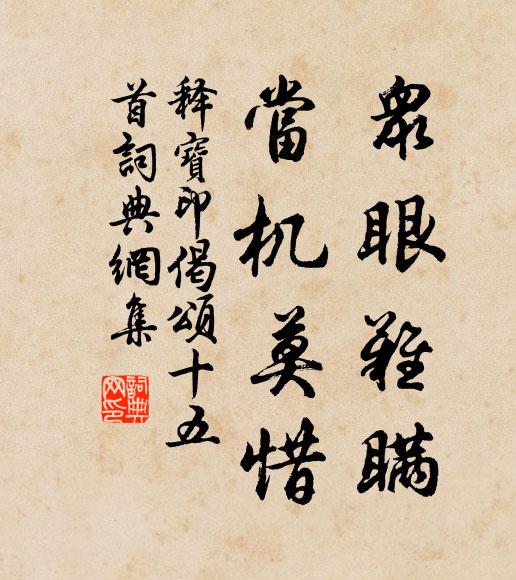 眾眼難瞞
當机莫惜
释寶印偈頌十五
首詞典網集
詞典网印